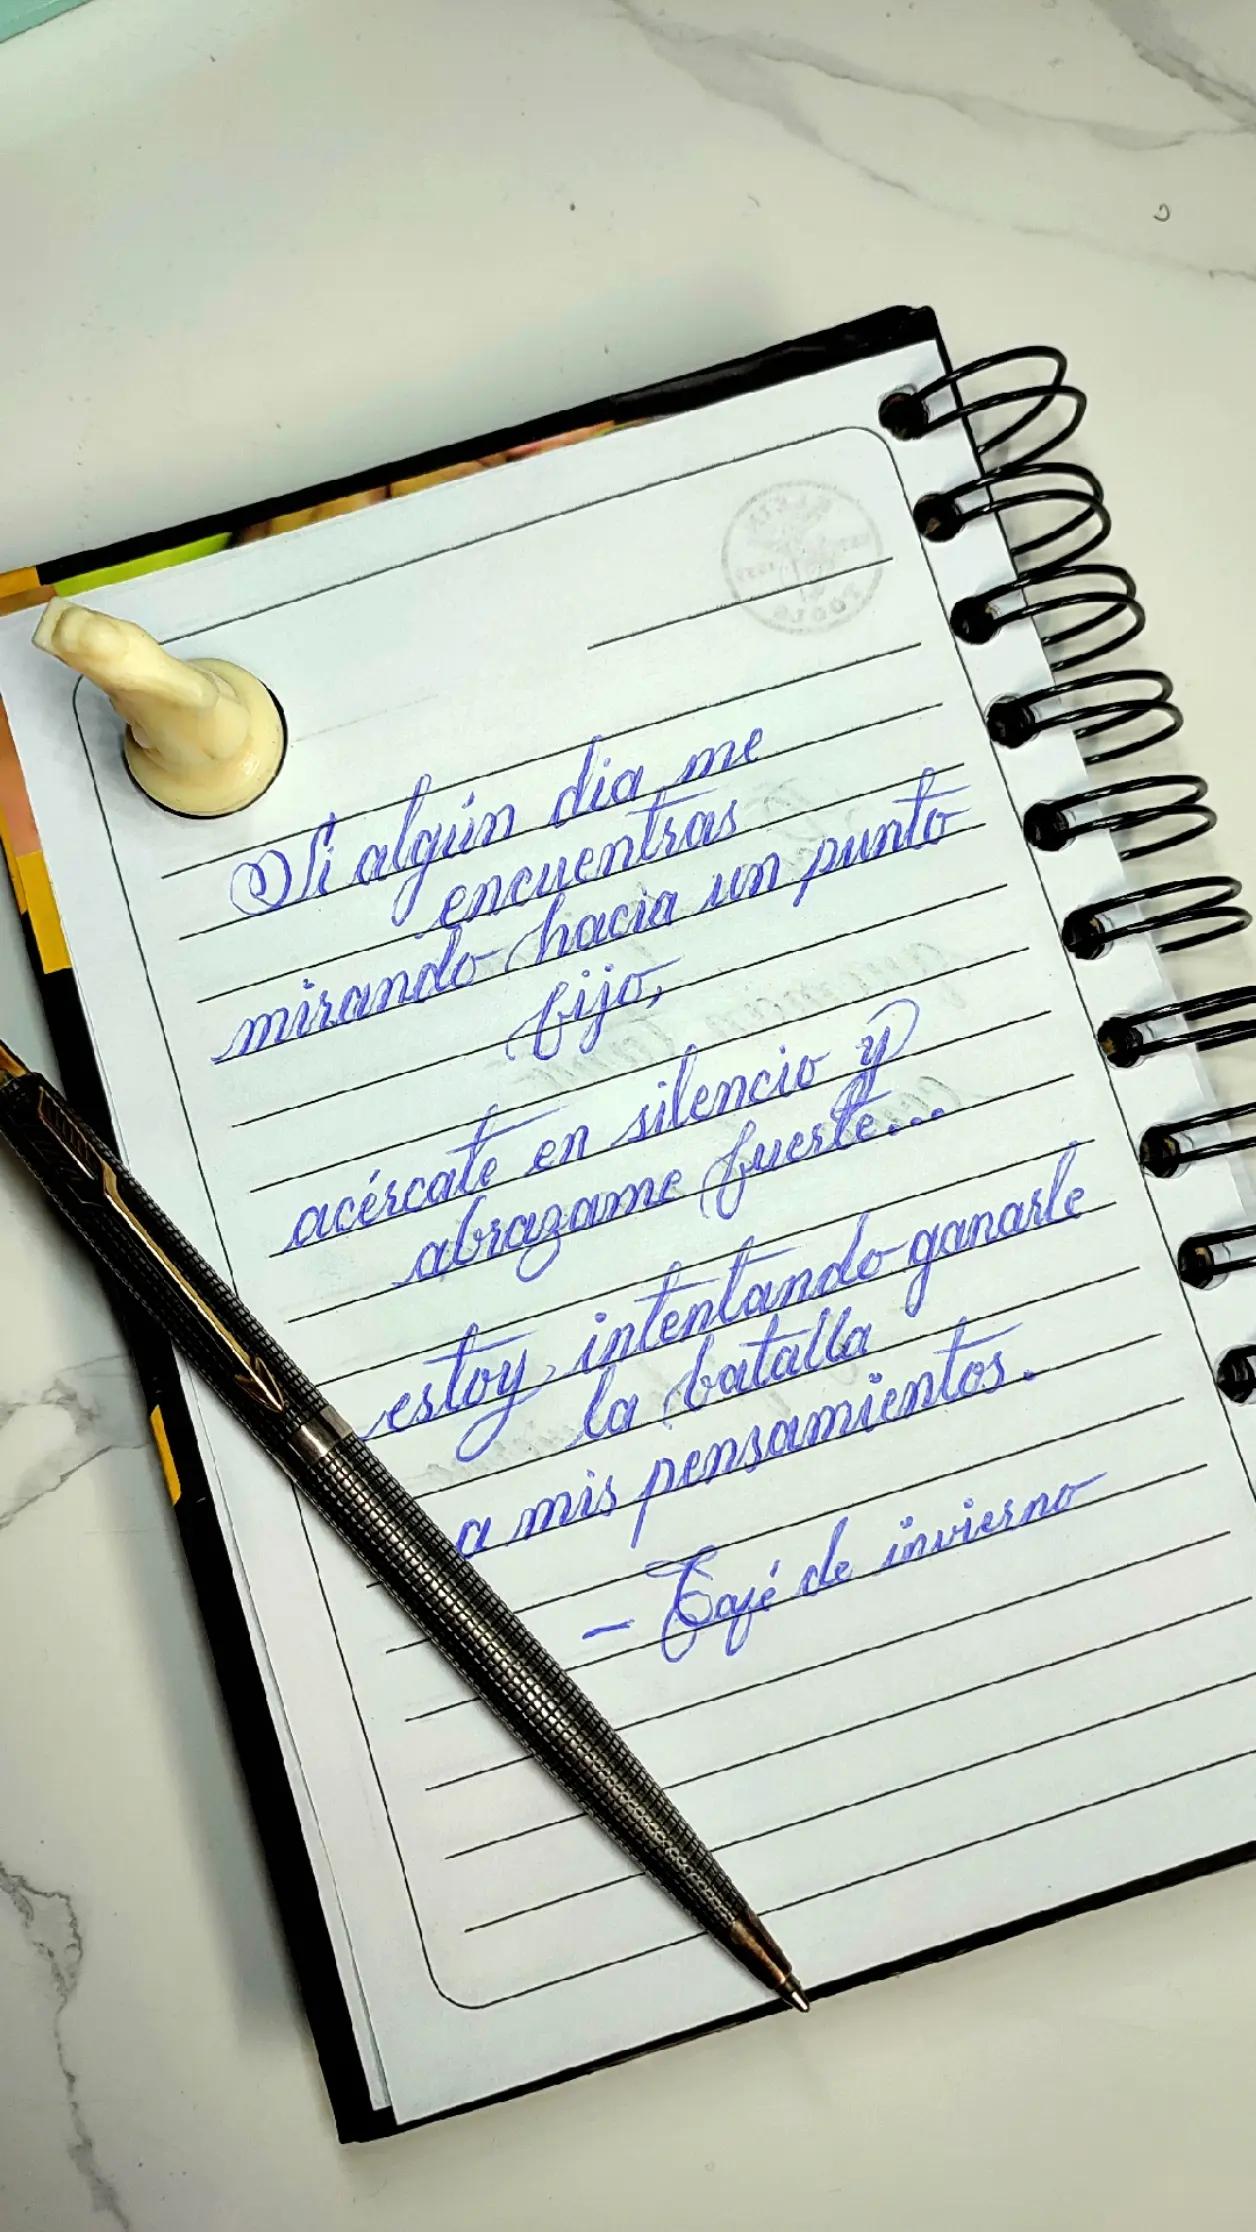 Si algún dia me
encuentras
mirando hacia un punto
fijo,
acércate en silencio y
abrazame fuerte...
estoy intentando ganarle
la batalla
a mis pensamientos.
- Café de invierno